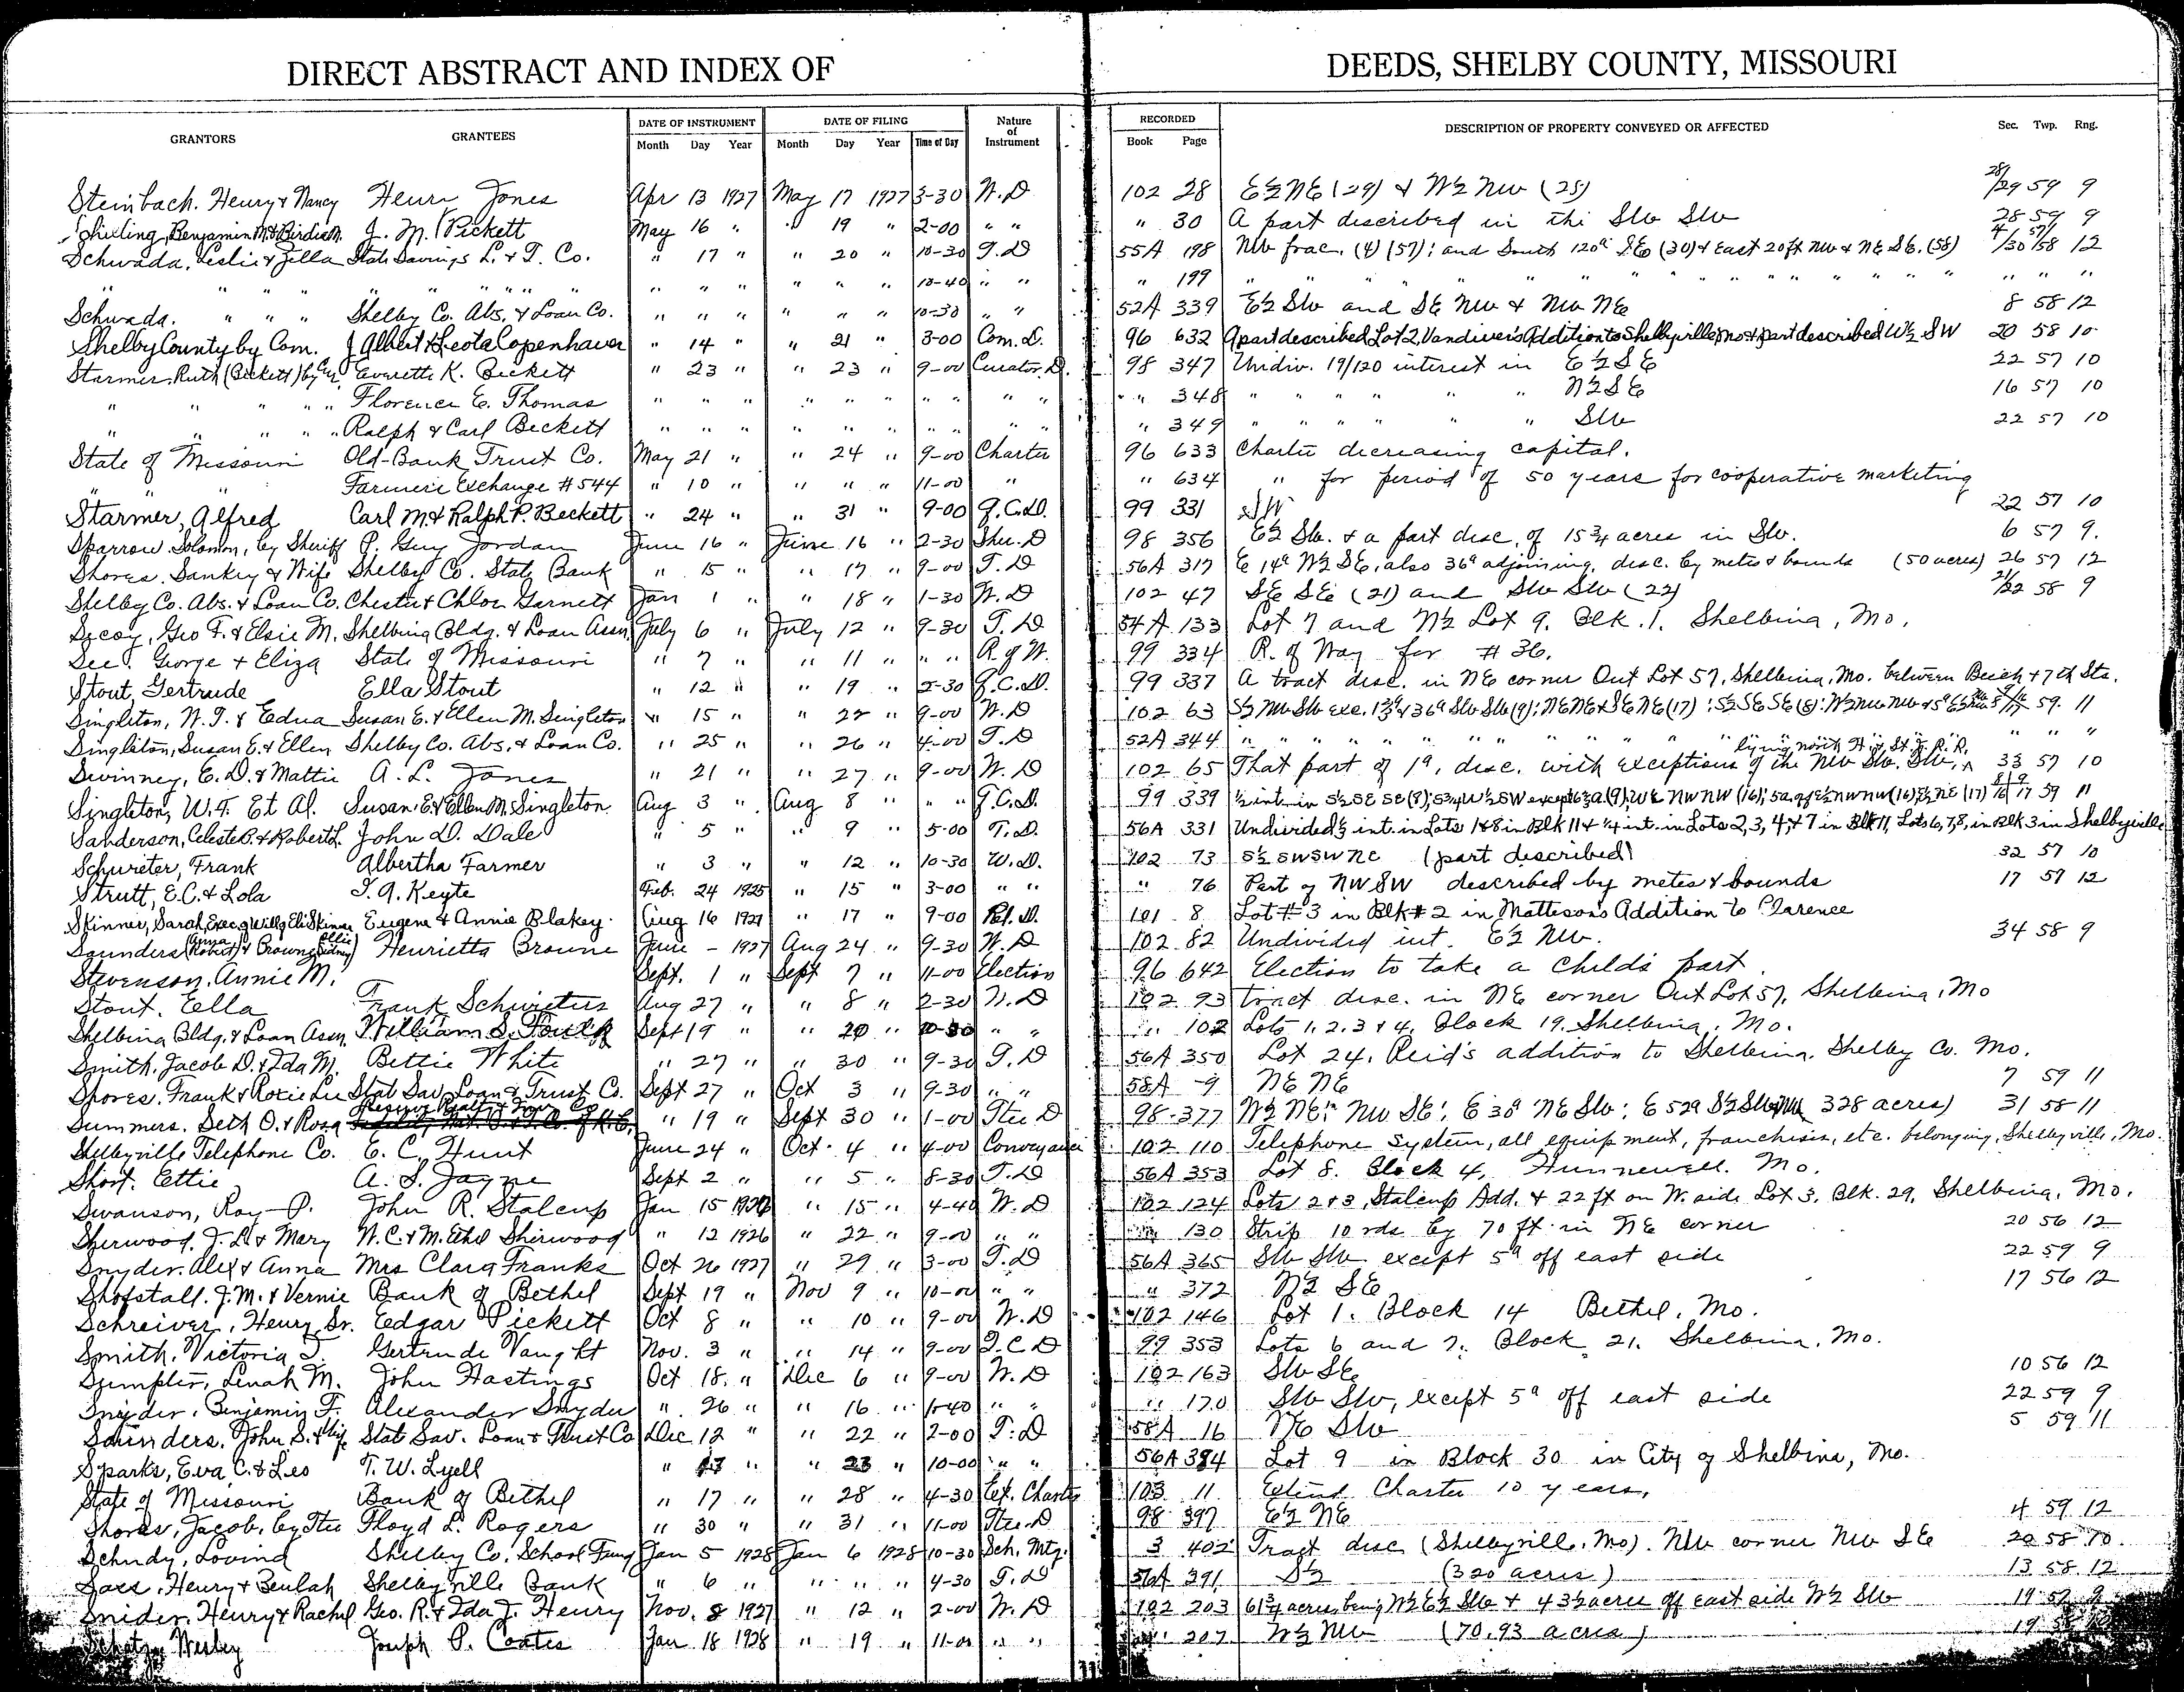 DIRECT ABSTRACT AND INDEX OF DEEDS, SHELBY COUNTY, MISSOURI
GRANTORS GRANTEES DATE OF INSTRUMENT Month Day Year DATE OF FILING Month Day Year Time of Day Nature of Instrument RECORDED Book Page DESCRIPTION OF PROPERTY CONVEYED OR AFFECTED Sec. Twp. Rng.
Steinbach, Henry & Nancy Henry Jones Apr 13 1927 May 17 1927 3-30 W.D 102 28 E½ NE (29) & W½ NW (28) 28/29 59 9
Benjamin M. & Birdie M. J. M. Pickett May 16 " " 19 " 2-00 " " " 30 A part discribed in the SW SW 28 59 9
Schwada, Leslie & Zella State Savings L. & T. Co. " 17 " " 20 " 10-30 T.D 55A 198 NW frac. (4) (57); and South 120a SE (30) & East 20 ft NW & NE SE. (58) 4/30 57/58 12
" " " " " " " " " " " " " " " 10-40 " " " 199 " " " " " " " " " " "
Schwada. " " " Shelby Co. Abs. & Loan Co. " " " " " " 10-30 " " 52A 339 E½ SW and SE NW & NW NE 8 58 12
Shelby County by Com. J Albert & Leota Copenhaver " 14 " " 21 " 3-00 Com. D. 96 632 A part described Lot 2, Vandiver's Addition to Shelbyville, Mo. & part described W½ SW 20 58 10
Starmer, Ruth (Beckett) by Cur. Everette K. Beckett " 23 " " 23 " 9-00 Curator. D. 98 347 Undiv. 19/120 interest in E½ SE 22 57 10
" " " " " Florence E. Thomas " " " " " " " " " " " 348 " " " " " " N½ SE 16 57 10
" " " " " Ralph & Carl Beckett " " " " " " " " " " " 349 " " " " " " SW 22 57 10
State of Missouri Old-Bank Trust Co. May 21 " " 24 " 9-00 Charter 96 633 Charter decreasing capital.
" " " Farmer's Exchange #544 " 10 " " " " 11-00 " " 634 " for period of 50 years for cooperative marketing
Starmer, Alfred Carl M. & Ralph P. Beckett " 24 " " 31 " 9-00 Q.C.D. 99 331 SW 22 57 10
Sparrow Solomon, by Sheriff P. Guy Jordan June 16 " June 16 " 2-30 Sher. D 98 356 E½ SW. & a part desc. of 15¾ acres in SW. 6 57 9.
Shores. Sankey & Wife Shelby Co. State Bank " 15 " " 17 " 9-00 T.D 56A 317 E 14a W½ SE, also 36a adjoining, desc. by metes & bounds (50 acres) 26 57 12
Shelby Co. Abs. & Loan Co. Chester & Chloe Garnett Jan 1 " " 18 " 1-30 W.D 102 47 SE SE (21) and SW SW (22) 21/22 58 9
Secoy, Geo F. & Elsie M. Shelbina Bldg. & Loan Assn. July 6 " July 12 " 9-30 T.D 54A 133 Lot 7 and N½ Lot 9. Blk. 1. Shelbina, Mo.
See, George & Eliza State of Missouri " 7 " " 11 " " " R of W. 99 334 R. of Way for #36.
Stout, Gertrude Ella Stout " 12 " " 19 " 5-30 Q.C.D. 99 337 A tract desc. in NE corner Out Lot 57, Shelbina, Mo. between Beech & 7th Sts.
Singleton, W. T. & Edna Susan E. & Ellen M. Singleton " 15 " " 22 " 9-00 W.D 102 63 59. 11
Singleton, Susan E. & Ellen Shelby Co. Abs. & Loan Co. " 25 " " 26 " 4-00 T.D 52A 344 " " " " " " " " " " " "
Swinney, E. D. & Mattie A. L. Jones " 21 " " 27 " 9-00 W.D 102 65 That part of 1a, desc. with exceptions of the NW SW. SW, lying north H & St. J. R.R. 33 57 10
Singleton, W.T. Et Al. Susan E. & Ellen M. Singleton Aug 3 " Aug 8 " " " Q.C.D. 99 339 59 11
Sanderson, Celeste B. & Robert L. John D. Dale " 5 " " 9 " 5-00 T.D. 56A 331 Undivided ⅓ int. in Lots 1 & 8 in Blk 11 & ¼ int. in Lots 2, 3, 4, & 7 in Blk 11, Lots 6, 7, 8, in Blk 3 in Shelbyville
Schwieter, Frank Albertha Farmer " 3 " " 12 " 10-30 W.D. 102 73 S½ SW SW NE (part described) 32 57 10
Strutt, E.C. & Lola I. A. Keyte Feb. 24 1925 " 15 " 3-00 " " " 76 Part of NW SW described by metes & bounds 17 59 12
Skinner, Sarah, Exec. of Will of Eli Skinner Eugene & Annie Blakey Aug 16 1927 " 17 " 9-00 Rel. D. 101 8 Lot #3 in Blk #2 in Matteson's Addition to Clarence
Saunders (Anna Robert) & Browne (Ellie Sidney) Henrietta Browne June - 1927 Aug 24 " 9-30 W.D 102 82 Undivided int. E½ NW. 34 58 9
Stevenson, Annie M. Sept. 1 " Sept 7 " 11-00 Election 96 642 Election to take a child's part.
Stout. Ella Frank Schwieters Aug 27 " " 8 " 2-30 W.D 102 93 tract desc. in NE corner Out Lot 57, Shelbina, Mo
Shelbina Bldg. & Loan Assn. William S. Sept 19 " " 20 " 10-30 " " " 102 Lots 1, 2. 3 & 4, Block 19. Shelbina, Mo.
Smith, Jacob D. & Ida M. Bettie White " 27 " " 30 " 9-30 T.D 56A 350 Lot 24, Reid's addition to Shelbina, Shelby Co. Mo.
Shores. Frank & Roxie Lee Stat Sav. Loan & Trust Co. Sept 27 " Oct 3 " 9-30 " " 58A -9 NE NE 7 59 11
Summers. Seth O. & Rosa Reserve Realty & Inv. Co " 19 " Sept 30 " 1-00 Stee D 98-377 W½ NE; NW SE; E 30a NE SW; E 52a S½ SW 328 acres) 31 58 11
Shelbyville Telephone Co. E. C. Hunt June 24 " Oct. 4 " 4-00 Conveyance 102 110 Telephone System, all equipment, franchises, etc. belonging, Shelbyville, Mo.
Short. Ettie A. S. Jayne Sept 2 " " 5 " 8-30 T.D 56A 353 Lot 8. Block 4, Hunnewell. Mo.
Swanson, Roy P. John R. Stalcup Jan 15 " 15 " 4-40 W.D 102 124 Lots 2 & 3, Stalcup Add. & 22 ft on W. side Lot 3, Blk. 29, Shelbina, Mo.
Sherwood. J. D. & Mary W. C. & M. Ethel Sherwood " 12 1926 " 22 " 9-00 " " " 130 Strip 10 rds by 70 ft in NE corner 20 56 12
Snyder. Alex & Anna Mrs Clara Franks Oct 26 1927 " 29 " 3-00 T.D 56A 365 SW SW except 5a off east side 22 59 9
Shofstall. J. M. & Vernie Bank of Bethel Sept 19 " Nov 9 " 10-00 " " " 372 N½ SE 17 56 12
Schreiver, Henry, Sr. Eedgar Pickett Oct 8 " " 10 " 9-00 W.D 102 146 Lot 1. Block 14 Bethel, Mo.
Smith, Victoria T. Gertrude Vaught Nov. 3 " " 14 " 9-00 Q.C.D 99 353 Lots 6 and 7. Block 21. Shelbina, Mo.
Sumpter, Lenah M. John Hastings Oct 18. " Dec 6 " 9-00 W.D 102 163 SW SE 10 56 12
Snyder, Benjamin F. Alexander Snyder " 26 " " 16 " 1-40 " " " 170 SW SW, except 5a off east side 22 59 9
Saunders. John S. & Wife Stat Sav. Loan & Trust Co Dec 12 " " 22 " 2-00 T.D 58A 16 NE SW 5 59 11
Sparks, Eva C. & Leo T. W. Lyell " 13 " " 23 " 10-00 " " 56A 384 Lot 9 in Block 30 in City of Shelbina, Mo.
State of Missouri Bank of Bethel " 17 " " 28 " 4-30 Ext. Charter 103 11 Extend Charter 10 years,
Shores, Jacob, by Stee Floyd L. Rogers " 30 " " 31 " 11-00 Stee D 98 397 E½ NE 4 59 12
Schudy, Lovind Shelby Co. School Fund Jan 5 1928 Jan 6 1928 10-30 Sch. Mtg. 3 402 Tract desc (Shelbyville, Mo). NW corner NW SE 20 58 10
Henry & Beulah Shelbyville Bank " 6 " " " " 4-30 T.D 56A 391 S½ (320 acres) 13 58 12
Snider, Henry & Rachel Geo. R. & Ida J. Henry Nov. 8 1927 " 12 " 2-00 W.D 102 203 61¾ acres being W½ E½ SW & 43½ acres off east side W½ SW 19 57 9
Wesley Joseph P. Coates Jan 18 1928 " 19 " 11-00 " " " 207 W½ NW (70.93 acres) 19